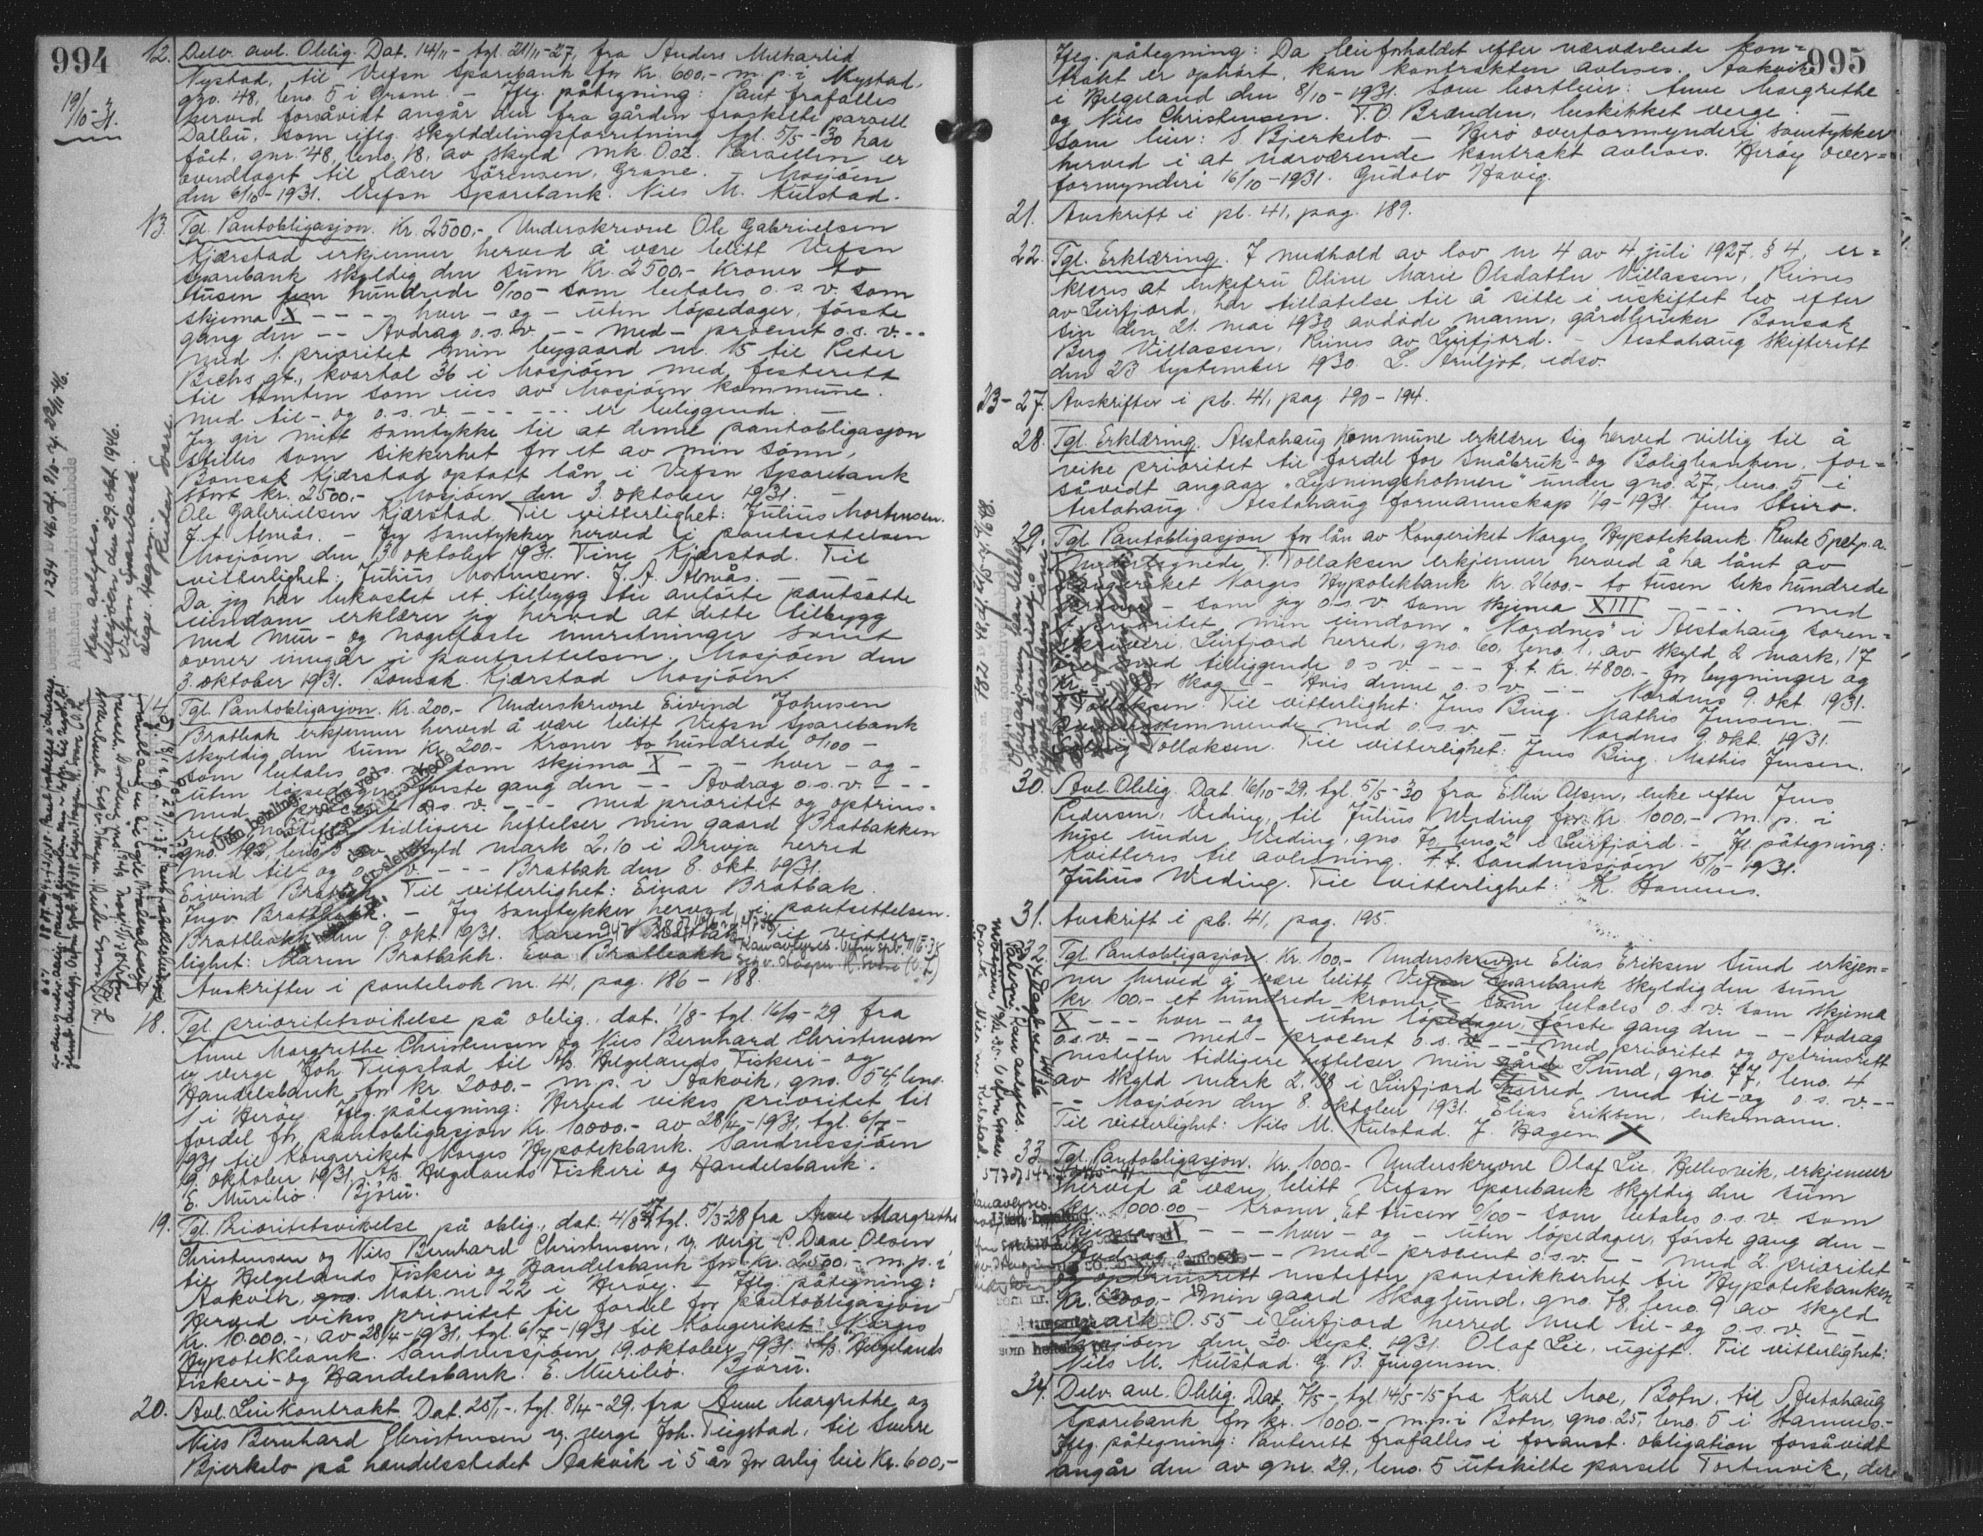 994
19/10-31.
12. Delv. avl. Oblig. Dat. 14/11- tgl. 21/11-27, fra Anders
Nystad, til Vefsn Sparebank for Kr. 600,- m. p. i Nystad,
gno. 48, bno. 5 i Grane. - Iflg. påtegning: Pant frafalles
herved forsåvidt angår den fra gården fraskilte parsell
som iflg. skylddelingsforretning tgl. 5/5-1930 har
fått gnr. 48, bno. 18, av skyld mk. 0.02. Parsellen er
overdraget til lærer Sörensen, Grane. - Mosjöen
den 6/10-1931. Vefsn Sparebank. Niels M. Kulstad.
13. Tgl. Pantobligasjon. Kr. 2500,- Underskrevne Ole Gabrielsen
Kjærstad erkjenner herved å være blitt Vefsn
Sparebank skyldig den sum Kr. 2500,- Kroner to
tusen fem hundrede 0/100 - som betales o. s. v. som
skjema X - - - - hver - og - uten löpedager, förste
gang den -- Avdrag o. s. v. -- med - procent o. s. v. --
med 1. prioritet min bygaard nr. 15 til Peter
Bechs gt., kvartal 36 i Mosjöen med festerett
til tomten som eies av Mosjöen kommune.
med til- og o. s. v. - - - - - er beliggende. -
Jeg gir mitt samtykke til at denne pantobligasjon
stilles som sikkerhet for et av min sönn,
Bonsak Kjærstad optatt lån i Vefsn Sparebank
stort kr. 2500,- Mosjöen den 3. oktober 1931. -
Ole Gabrielsen Kjærstad. Til vitterlighet: Julius Mortensen.
J. A. Almås. - Jeg samtykker herved i pantsettelsen
Mosjöen den 13. oktober 1931. Tine Kjærstad. Til
vitterlighet: Julius Mortensen. J. A. Almås. -
Da jeg har bekostet et tilbygg til anförte pantsatte
eiendom erklærer jeg herved at dette tilbygg
med mur- og nagelfaste innretninger samt
ovner inngår i pantsettelsen. Mosjöen den
3. oktober 1931. Bonsak Kjærstad Mosjöen.
14. Tgl. Pantobligasjon. Kr. 200,- Underskrevne Eivind Johnsen
Bratbak erkjenner herved å være blitt Vefsn Sparebank
skyldig den sum Kr. 200.- Kroner to hundrede 0/100 -
som betales o. s. v. som skjema X - - - hver - og -
uten löpedager, förste gang den -- Avdrag o. s. v. - - -
med - procent o. s. v. - - - med prioritet og optrins-
rett nestefter tidligere heftelser min gaard Bratbakken
gno. 192, bno. 3 av skyld mark 2.10 i Drevja herred
med til- og o. s. v. - - - Bratbak den 8. okt. 1931.
Eivind Bratbak. Til vitterlighet: Einar Bratbak.
Ingv. Brattbakk. - Jeg samtykker herved i pantsettelsen.
Brattbakk den 9. okt. 1931. Karen Til vitter-
lighet: Maren Bratbakk. Eva Bratbakk
Avskrifter i pantebok nr. 41, pag. 186 - 188.
18. Tgl. prioritetsvikelse på oblig. dat. 1/8- tgl. 16/9-29 fra
Anne Margrethe Christensen og Niels Bernhard Christensen
v. verge Joh. Teigstad til A/s. Helgelands Fiskeri- og
Handelsbank for kr. 2000.- m. p. i Aakvik, gno. 54, bno.
1 i Heröy. Iflg. påtegning: Herved vikes prioritet til
fordel for pantobligasjon kr. 10000,- av 28/4-1931, tgl. 6/7-
1931 til Kongeriket Norges Hypotekbank. Sandnessjöen
19. oktober 1931. A/s. Helgelands Fiskeri og Handelsbank.
E. Mürilio. Björu.
19. Tgl. Prioritetsvikelse på oblig., dat. 4/8-27, tgl. 5/3-28 fra Anne Margrethe
Christensen og Niels Bernhard Christensen, v. verge C. Daae Olsen
til Helgelands Fiskeri og Handelsbank for kr. 2500,- m. p. i
Aakvik, gno. Matr. nr. 22 i Heröy. - Iflg. påtegning:
Herved vikes prioritet til fordel for pantobligasjon
Kr. 10.000,-, av 28/4-1931, tgl. 6/7-1931 til Kongeriket Norges
Hypotekbank. Sandnessjöen, 19. oktober 1931. A/s. Helgelands
Fiskeri- og Handelsbank. E. Mürilio. Björu.
20. Avl. Leiekontrakt Dat. 25/1-, tgl. 8/4-29, fra Anne Margrethe og
Niels Bernhard Christensen v. verge Joh. Teigstad, til Sverre
Bjerkelo på handelsstedet Aakvik i 5 år for årlig leie Kr. 600,-
Kan avlyses.
Mosjöen den 29. okt. 1946.
Vefsn Sparebank.
995
Iflg. påtegning: Da leieforholdet efter nærværende kon-
trakt er ophört, kan kontrakten avlyses. Aakvik
i Helgeland den 8/10-1931. Som bortleier: Anne Margrethe
og Niels Christensen. T. O. Brænden, beskikket verge.
Som leier: S. Bjerkelo. - Herö overformynderi samtykker
herved i at nærværende kontrakt avlyses. Heröy over-
formynderi 16/10-1931. Gudolv Havig.
21. Avskrift i pb. 41, pag. 189.
22. Tgl. Erklæring. I medhold av lov nr. 4 av 4. juli 1927, § 4, er-
klæres at enkefru Oline Marie Olsdatter Villassen, Reines
av Leirfjord, har tillatelse til å sitte i uskiftet bo efter
sin den 21. mai 1930 avdöde mann, gårdbruker Bonsak
Berg Villassen, Reines av Leirfjord. - Alstahaug skifterett
den 23. september 1930. L. Arnljot, edsv.
23-27. Avskrifter i pb. 41, pag. 190 - 194.
28. Tgl. Erklæring. Alstahaug Kommune erklærer sig herved villig til å
vike prioritet til fordel for Småbruk- og Boligbanken, for-
såvidt angaar "Lysningsholmen" under gno. 27, bno. 5 i
Alstahaug. Alstahaug formannskap 1/9-1931. Jens Sturo.
29. Tgl. Pantobligasjon for lån av Kongeriket Norges Hypotekbank. Rente 5 pct. p. a.
Undertegnede, T. Tollaksen erkjenner herved å ha lånt av
Kongeriket Norges Hypotekbank Kr. 2600,- to tusen seks hundrede
kroner - som jeg o. s. v. som skjema XIII - - - - med
1. prioritet min eiendom "Nordnes" i Alstahaug soren-
skriveri, Leirfjord herred, gno. 60, bno. 1, av skyld 2 mark, 17
öre med tilliggende o s v - - - f. t. Kr. 4800.- for bygninger og
Kr. for skog - - Hvis denne o. s. v. - - Nordnes 9. okt 1931.
T. Tollaksen. Til vitterlighet: Jens Bing. Mathis Jensen. -
overensstemmende med o. s. v. - Nordnes 9. okt. 1931.
Tollaksen. Til vitterlighet: Jens Bing. Mathis Jensen.
30. Avl. Oblig. Dat. 16/10-29. tgl. 5/5-30 fra Ellen Olsen, enke efter Jens
Pedersen, Meding, til Julius Meding for Kr. 1000.- m. p. i
huse under Meding, gno. 70, bno. 2 i Leirfjord. - Ifl. påtegning:
Kvitteres til avlesning. F. t. Sandnessjöen 15/10-1931.
Julius Meding. Til vitterlighet: K. Hannes.
31. Avskrift i pb. 41, pag. 195
32. Tgl. Pantobligasjon. Kr. 100.- Underskrevne Elias Eriksen Sund erkjen-
ner herved å være blitt Vefsn Sparebank skyldig den sum
kr. 100.- et hundrede kroner - som betales o. s. v. som skjema
X - - - hver - og - uten löpedager, förste gang den -- Avdrag
o. s. v. -- med - procent o. s. v. - - med prioritet og optrinsrett
nestefter tidligere heftelser min gård Sund, gno. 77, bno. 4
av skyld mark 2.38 i Leirfjord herred, med til- og o. s. v. --
-- Mosjöen den 8. oktober 1931. Elias Eriksen, enkemann.
Til vitterlighet: Niels M. Kulstad. J. Hagen
33. Tgl. Pantobligasjon. Kr. 1000.- Underskrevne Olaf Lie, Hellesvik, erkjenner
herved å være blitt Vefsn Sparebank skyldig den sum
Kr. 1000.00 - Kroner Et tusen 0/00 - som betales o. s. v. som
skjema X - - - hver - og - uten löpedager, förste gang den -
Avdrag o. s. v. - - med - procent o. s. v. - - med 2. prioritet
og optrinsrett nestefter pantsikkerhet til Hypotekbanken
Kr. 2000,- min gaard Skoglund, gno. 78, bno. 9 av skyld
mark 0.55 i Leirfjord herred med til- og o. s. v. -
Mosjöen den 30. sept. 1931. Olaf Lie, ugift. Til vitterlighet:
Niels M. Kulstad. G. B. Jürgensen.
34. Delv. avl. Oblig. Dat. 7/5- tgl. 14/5-15 fra Karl Moe, Botn, til Alstahaug
Sparebank for kr. 1000.- m. p. i Botn, gno. 25, bno. 5 i Stamnes.-
Iflg. påtegning: Panterett frafalles i foranst. obligation forsåvidt
angår den av gnr. 29., bno. 5 utskilte parsell Tortenvik, der